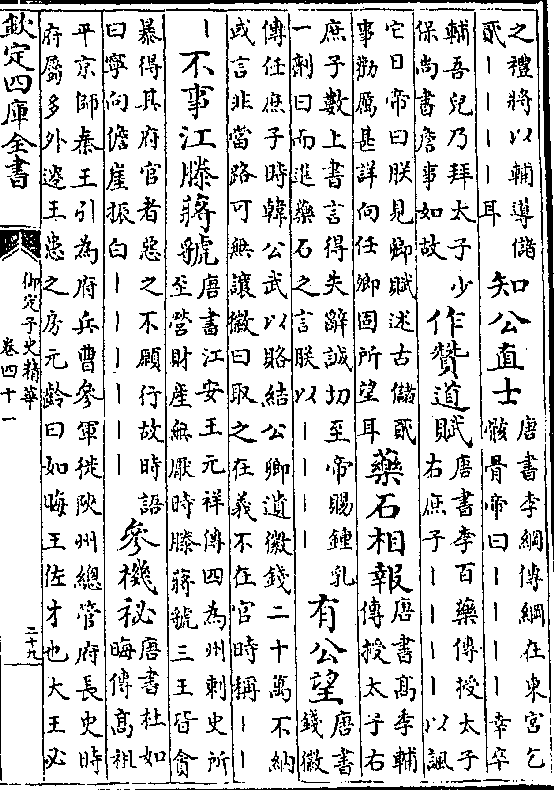 之禮將以輔導儲
貳丨丨丨丨耳
知公直士
唐書李綱傳綱在東宮乞
骸骨帝曰丨丨丨丨幸卒
輔吾兒乃拜太子少
保尚書詹事如故
作贊道賦
唐書李百藥傳授太子
右庶子丨丨丨丨以諷
它日帝曰朕見卿賦述古儲貳
事勸厲甚詳向任卿固所望耳
藥石相報
唐書髙季輔
傳授太子右
庶子數上書言得失辭誠切至帝賜鍾乳
一劑曰而進藥石之言朕以丨丨丨丨
有公望
唐書
錢徽
傳任庶子時韓公武以賂結公卿遺徽錢二十萬不納
或言非當路可無讓徽曰取之在義不在官時稱丨丨
丨
不事江滕蔣虢
唐書江安王元祥傳四為州刺史所
至營財産無厭時滕蔣虢三王皆貪
暴得其府官者惡之不願行故時語
曰寧向儋崖振白丨丨丨丨丨丨
參機秘
唐書杜如
晦傳髙祖
平京師秦王引為府兵曹參軍徙陜州總管府長史時
府屬多外遷王患之房元齡曰如晦王佐才也大王必
欽定四庫全書
御定子史精華
卷四十一
二十九